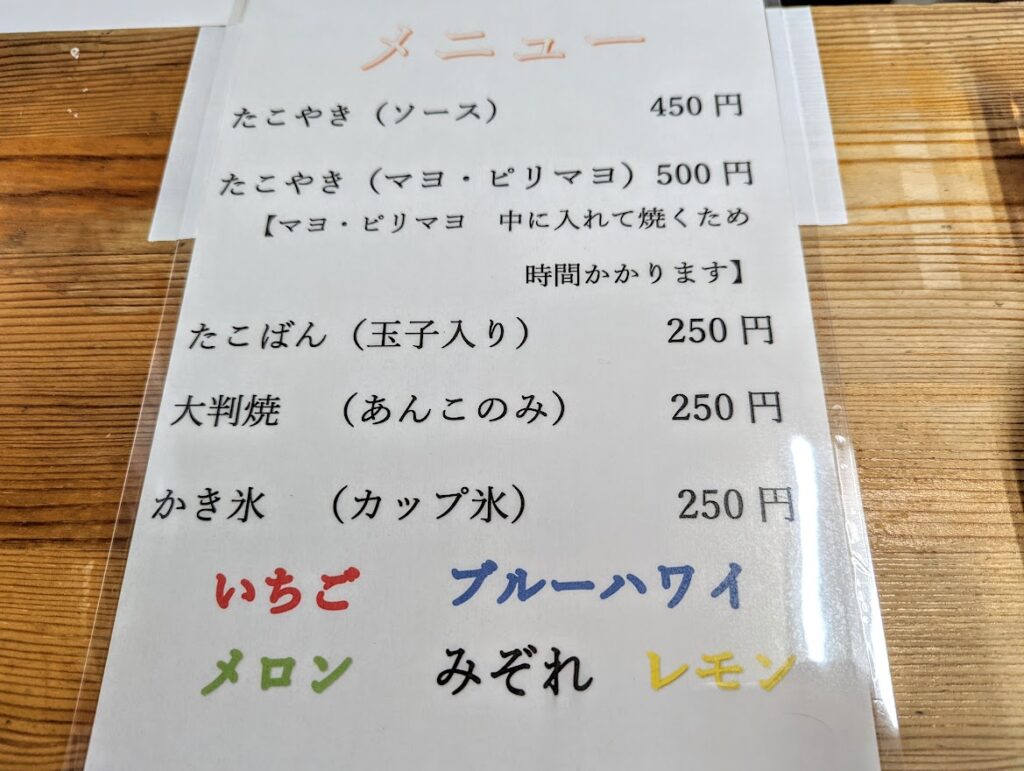 メニュー
たこやき（ソース） 450円
たこやき（マヨ・ピリマヨ）500円
【マヨ・ピリマヨ 中に入れて焼くため
時間かかります】
たこばん（玉子入り） 250円
大判焼 （あんこのみ） 250円
かき氷 （カップ氷） 250円
いちご ブルーハワイ
メロン みぞれ レモン